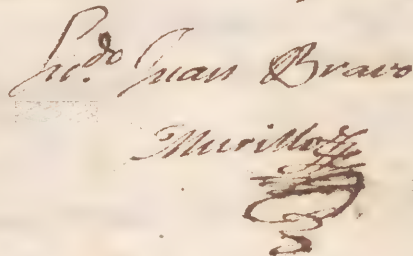 Lic.do Juan Bravo
Murillo